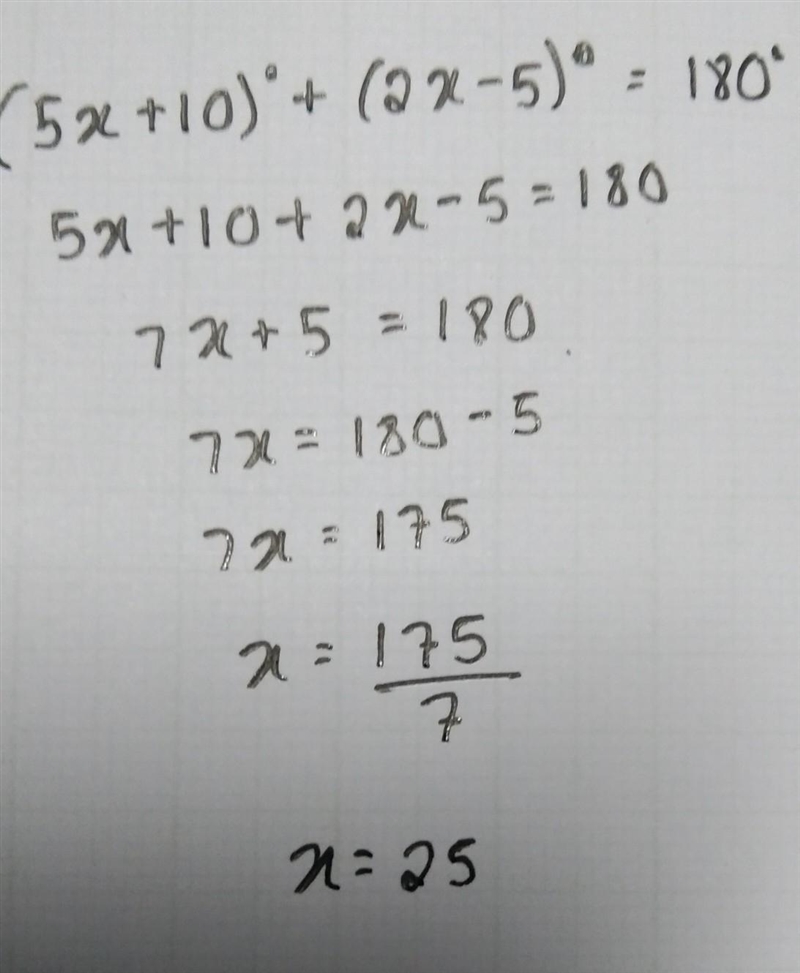 (5x+10)° + (2x-5)° = 180°
5x+10+2x-5=180
7x+5 = 180
7x=180-5
7x=175
x=175/7
x=25